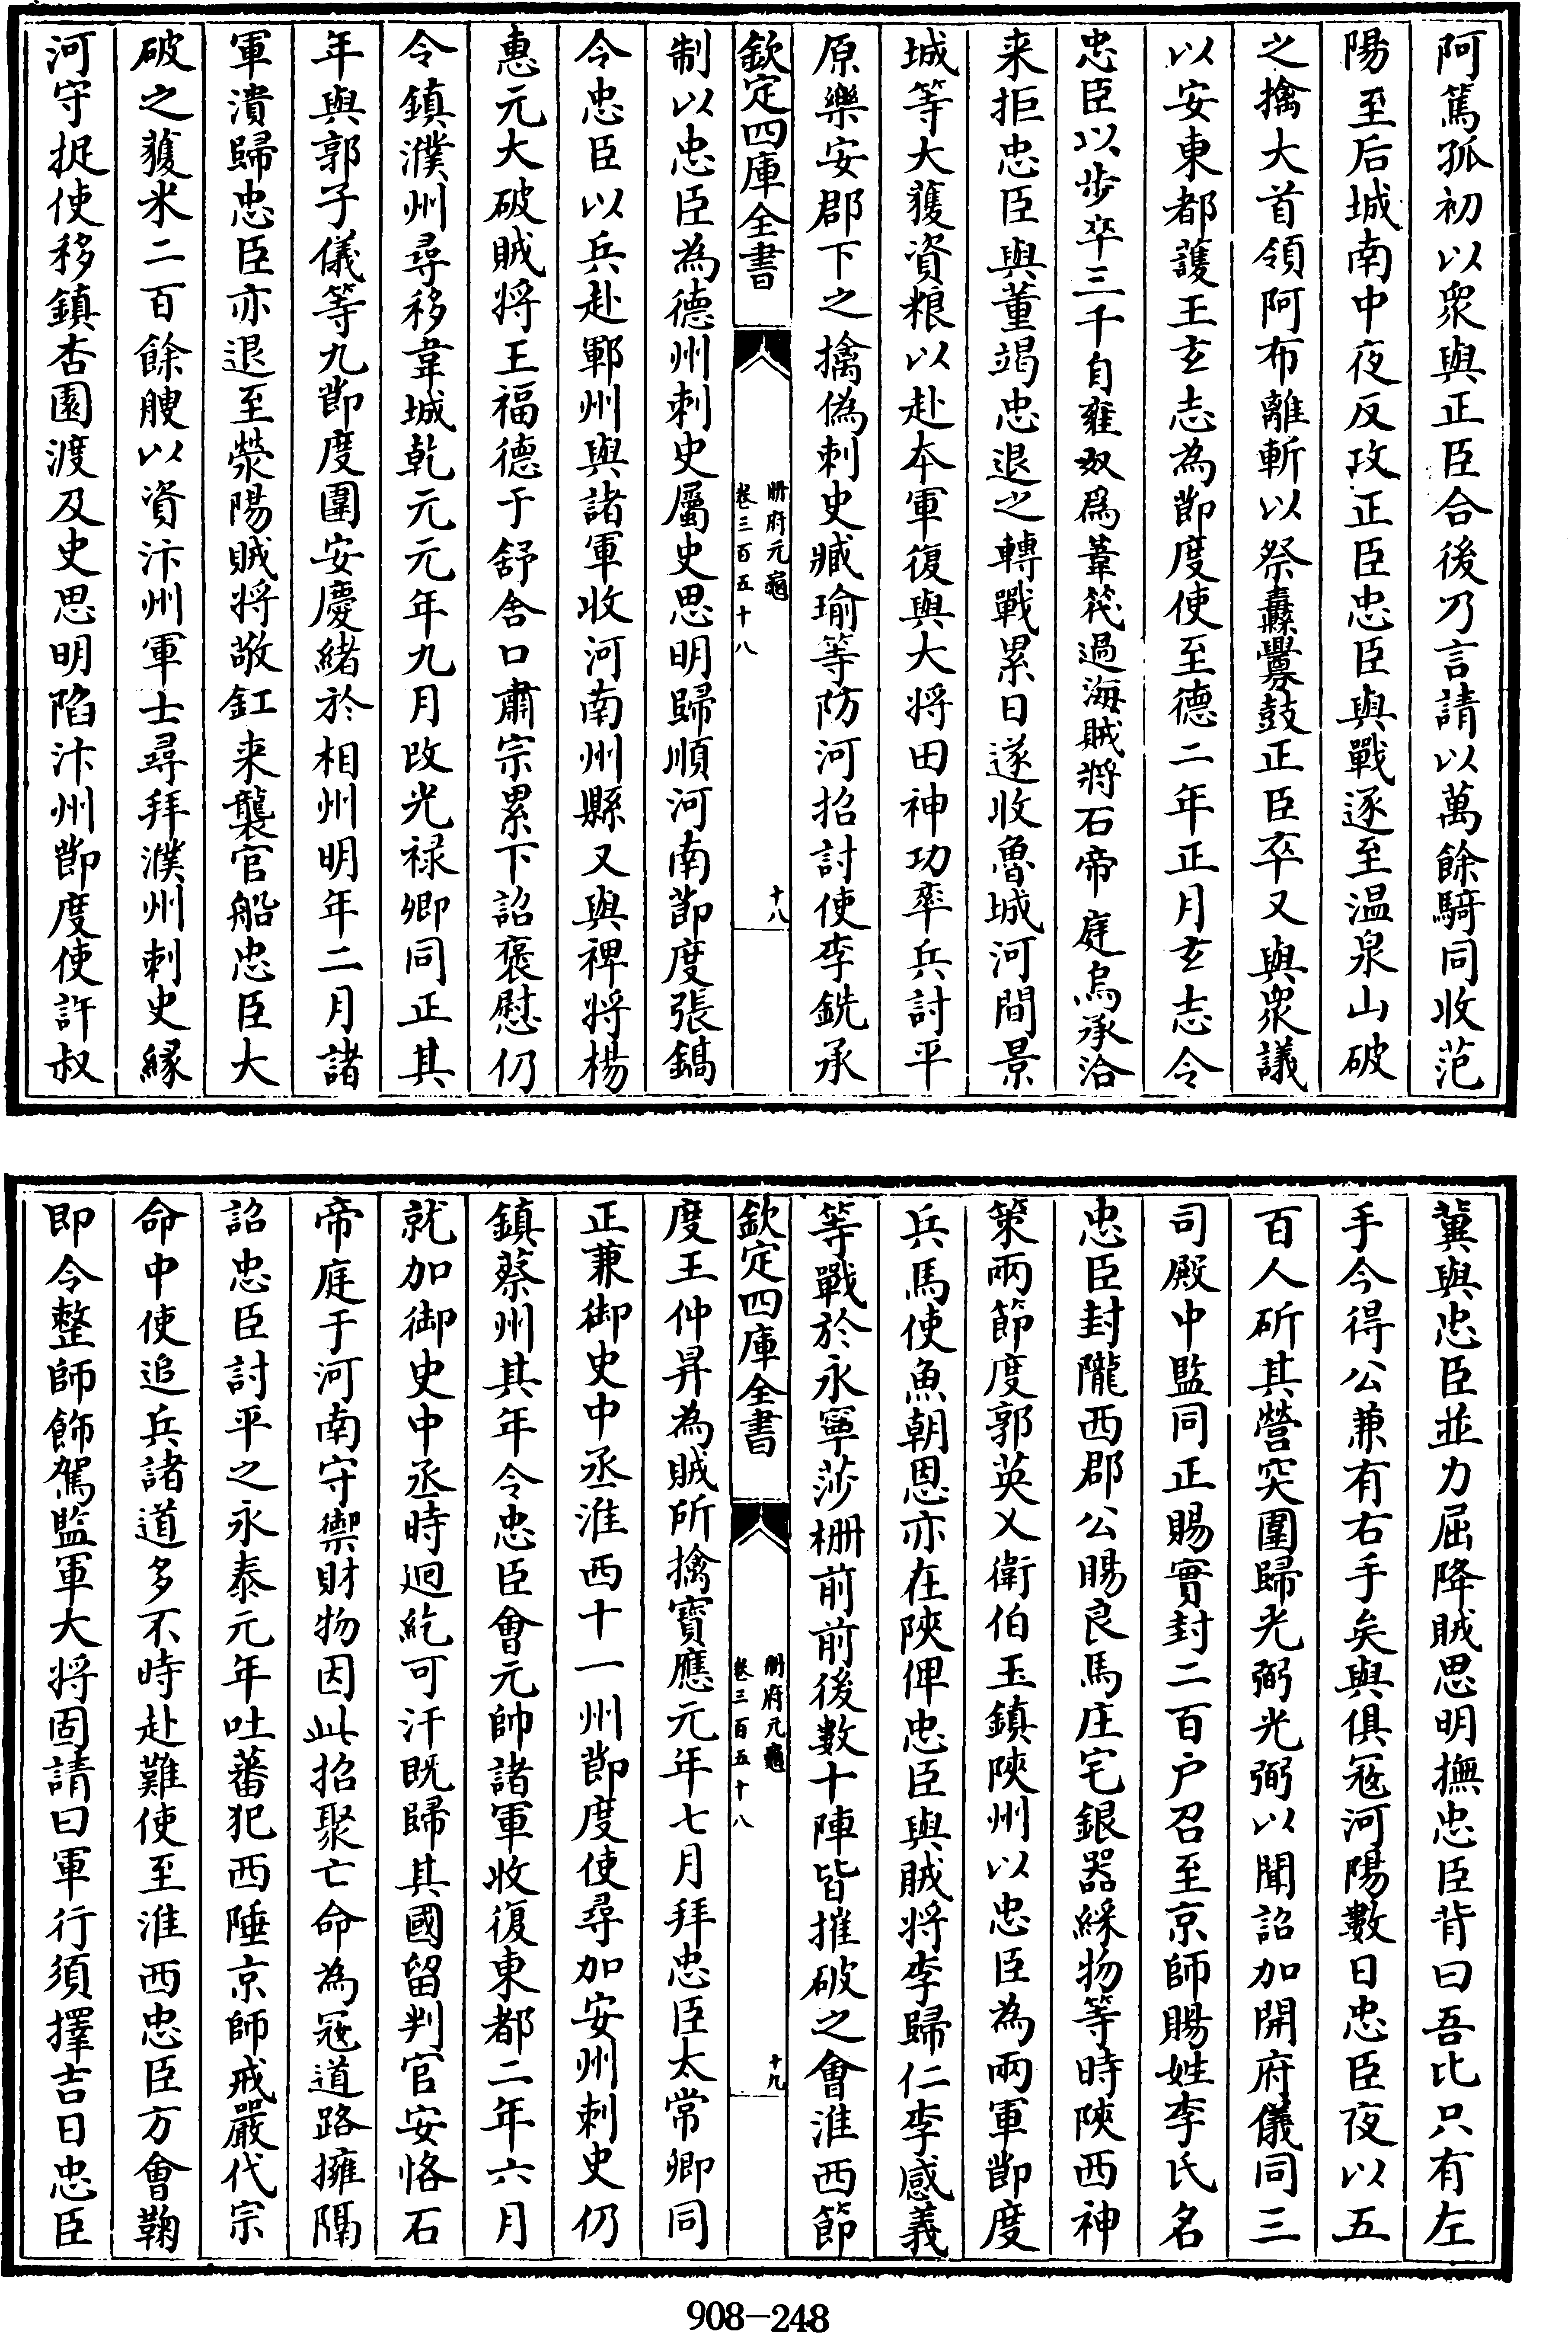 阿篤孤初以衆與正臣合後乃言請以萬餘騎同收范
陽至后城南中夜反攻正臣忠臣與戰逐至温泉山破
之擒大首領阿布離斬以祭纛釁鼓正臣卒又與衆議
以安東都護王玄志為節度使至德二年正月玄志令
忠臣以步卒三千自雍奴爲葦筏過海賊將石帝庭烏承洽
来拒忠臣與董竭忠退之轉戰累日遂收魯城河間景
城等大獲資粮以赴本軍復與大将田神功率兵討平
原樂安郡下之擒偽刺史臧瑜等防河招討使李銑承
欽定四庫全書
冊府元龜
卷三百五十八
十八
制以忠臣為德州刺史屬史思明歸順河南節度張鎬
令忠臣以兵赴鄆州與諸軍收河南州縣又與裨将楊
惠元大破賊将王福德于舒舍口肅宗累下詔褒慰仍
令鎮濮州尋移韋城乾元元年九月改光禄卿同正其
年與郭子儀等九節度圍安慶緒於相州明年二月諸
軍潰歸忠臣亦退至滎陽賊将敬釭来襲官船忠臣大
破之獲米二百餘艘以資汴州軍士尋拜濮州刺史縁
河守捉使移鎮杏園渡及史思明陷汴州節度使許叔
冀與忠臣並力屈降賊思明撫忠臣背曰吾比只有左
手今得公兼有右手矣與俱冦河陽數日忠臣夜以五
百人斫其營突圍歸光弼光弼以聞詔加開府儀同三
司殿中監同正賜實封二百户召至京師賜姓李氏名
忠臣封隴西郡公賜良馬庄宅銀器綵物等時陝西神
策兩節度郭英乂衛伯玉鎮陝州以忠臣為兩軍節度
兵馬使魚朝恩亦在陝俾忠臣與賊将李歸仁李感義
等戰於永寧莎栅前前後數十陣皆摧破之會淮西節
欽定四庫全書
冊府元龜
卷三百五十八
十九
度王仲昇為賊所擒寶應元年七月拜忠臣太常卿同
正兼御史中丞淮西十一州節度使尋加安州刺史仍
鎮蔡州其年令忠臣會元帥諸軍收復東都二年六月
就加御史中丞時迴紇可汗既歸其國留判官安恪石
帝庭于河南守禦財物因此招聚亡命為冦道路擁隔
詔忠臣討平之永泰元年吐蕃犯西陲京師戒嚴代宗
命中使追兵諸道多不時赴難使至淮西忠臣方會鞠
即令整師飾駕監軍大将固請曰軍行須擇吉日忠臣
908-248